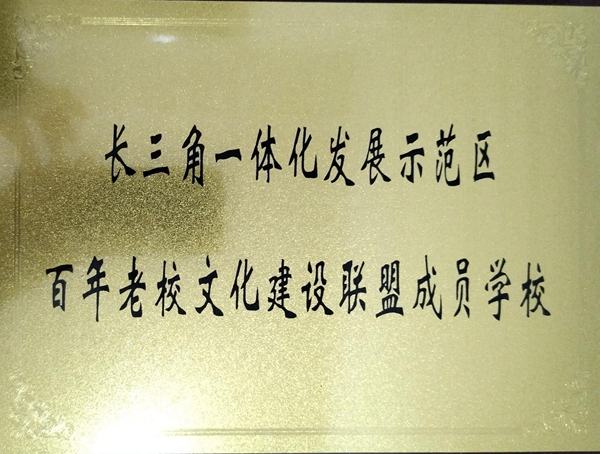 长三角一体化发展示范区
百年老校文化建设联盟成员学校